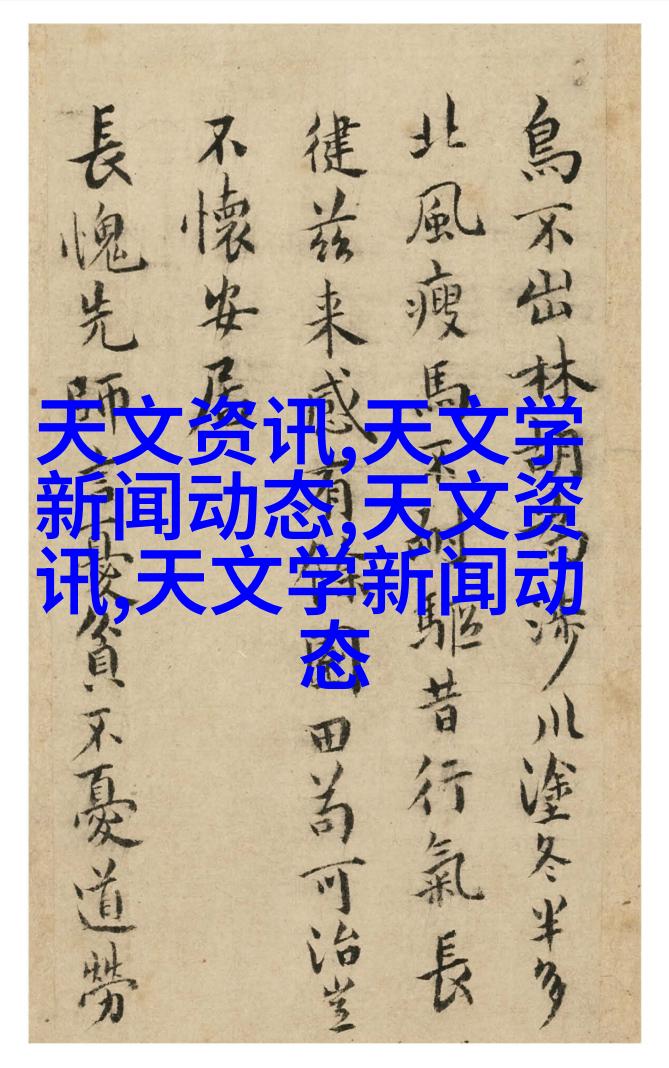 鳥不出林胡為涉川塗冬半多
北風瘦馬不耐驅昔行氣長
徤茲来感有園田苟可治豈
不懷安居
長愧先師言憂貧不憂道勞
天文资讯,天文学
新闻动态,天文资
讯,天文学新闻动
态